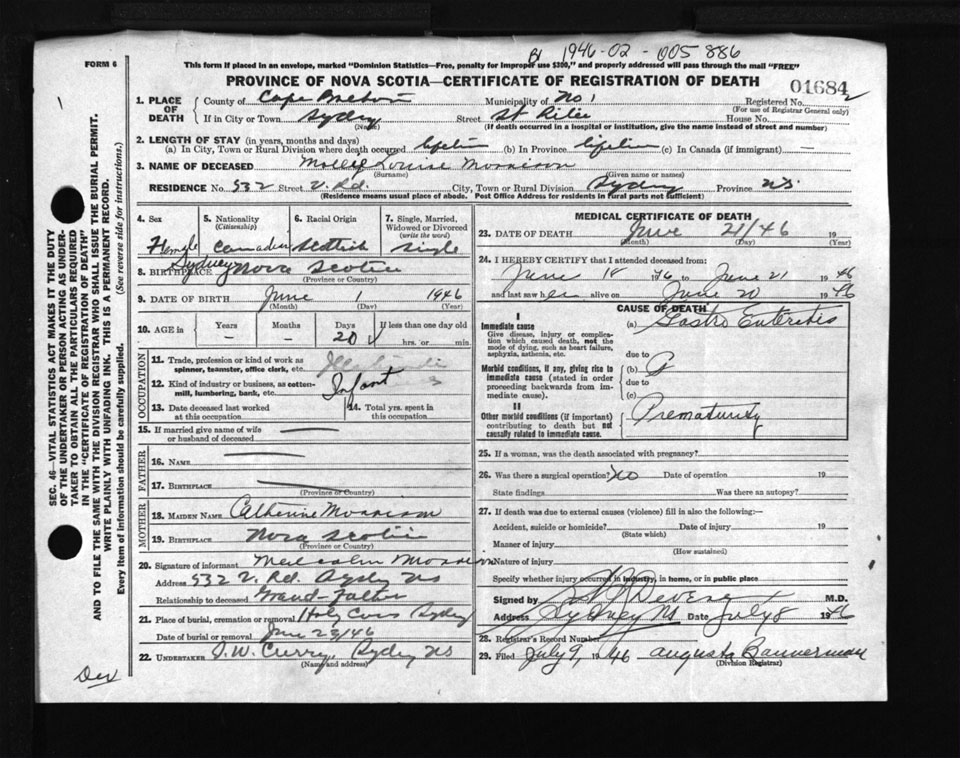 B 1946-02-005886
FORM 6
This form if placed in an envelope, marked "Dominion Statistics—Free, penalty for improper use $300," and properly addressed will pass through the mail "FREE"
PROVINCE OF NOVA SCOTIA—CERTIFICATE OF REGISTRATION OF DEATH
01684
1. PLACE OF DEATH
County of Cape Breton Municipality of No 1 Registered No.
(For use of Registrar General only)
If in City or Town Sydney Street St Rita House No.
(Name) (If death occurred in a hospital or institution, give the name instead of street and number)
2. LENGTH OF STAY (in years, months and days)
(a) In City, Town or Rural Division where death occurred lifetime (b) In Province lifetime (c) In Canada (if immigrant) —
3. NAME OF DECEASED Mollie Louise Morrison
(Surname) (Given name or names)
RESIDENCE No. 532 Street V. Rd. City, Town or Rural Division Sydney Province NS
(Residence means usual place of abode. Post Office Address for residents in rural parts not sufficient)
4. Sex 5. Nationality (Citizenship) 6. Racial Origin 7. Single, Married, Widowed or Divorced (write the word)
Female Canadian Scottish Single
8. BIRTHPLACE Sydney Nova Scotia
(Province or Country)
9. DATE OF BIRTH June 1 1946
(Month) (Day) (Year)
10. AGE in Years Months Days If less than one day old
– – 20 hrs. or min.
OCCUPATION
11. Trade, profession or kind of work as spinner, teamster, office clerk, etc.
12. Kind of industry or business, as cotton-mill, lumbering, bank, etc. Infant
13. Date deceased last worked at this occupation 14. Total yrs. spent in this occupation
15. If married give name of wife or husband of deceased —
FATHER
16. NAME —
17. BIRTHPLACE —
(Province or Country)
MOTHER
18. MAIDEN NAME Catherine Morrison
19. BIRTHPLACE Nova Scotia
(Province or Country)
20. Signature of informant Malcolm Morrison
Address 532 V. Rd. Sydney NS
Relationship to deceased Grand-Father
21. Place of burial, cremation or removal Holy Cross Sydney
Date of burial or removal June 23/46
22. UNDERTAKER D.W. Curry, Sydney NS
(Name and address)
MEDICAL CERTIFICATE OF DEATH
23. DATE OF DEATH June 21/46 19
(Month) (Day) (Year)
24. I HEREBY CERTIFY that I attended deceased from:
June 18 1946 to June 21 1946
and last saw her alive on June 20 1946
CAUSE OF DEATH
I
Immediate cause (a) Gastro Enteritis
Give disease, injury or complication which caused death, not the mode of dying, such as heart failure, asphyxia, asthenia, etc. due to
Morbid conditions, if any, giving rise to immediate cause (stated in order proceeding backwards from immediate cause). (b)
due to
(c)
II
Other morbid conditions (if important) contributing to death but not causally related to immediate cause. Prematurity
25. If a woman, was the death associated with pregnancy?
26. Was there a surgical operation? No Date of operation 19
State findings Was there an autopsy?
27. If death was due to external causes (violence) fill in also the following:—
Accident, suicide or homicide? Date of injury 19
(State which)
Manner of injury
(How sustained)
Nature of injury
Specify whether injury occurred in industry, in home, or in public place
Signed by Devereux M.D.
Address Sydney NS Date July 8 1946
28. Registrar's Record Number
29. Filed July 9, 1946 Augusta Bannerman
(Division Registrar)
SEC. 46—VITAL STATISTICS ACT MAKES IT THE DUTY
OF THE UNDERTAKER OR PERSON ACTING AS UNDER-
TAKER TO OBTAIN ALL THE PARTICULARS REQUIRED
IN THE "CERTIFICATE OF REGISTRATION OF DEATH"
AND TO FILE THE SAME WITH THE DIVISION REGISTRAR WHO SHALL ISSUE THE BURIAL PERMIT.
WRITE PLAINLY WITH UNFADING INK. THIS IS A PERMANENT RECORD.
Every item of information should be carefully supplied. (See reverse side for instructions.)